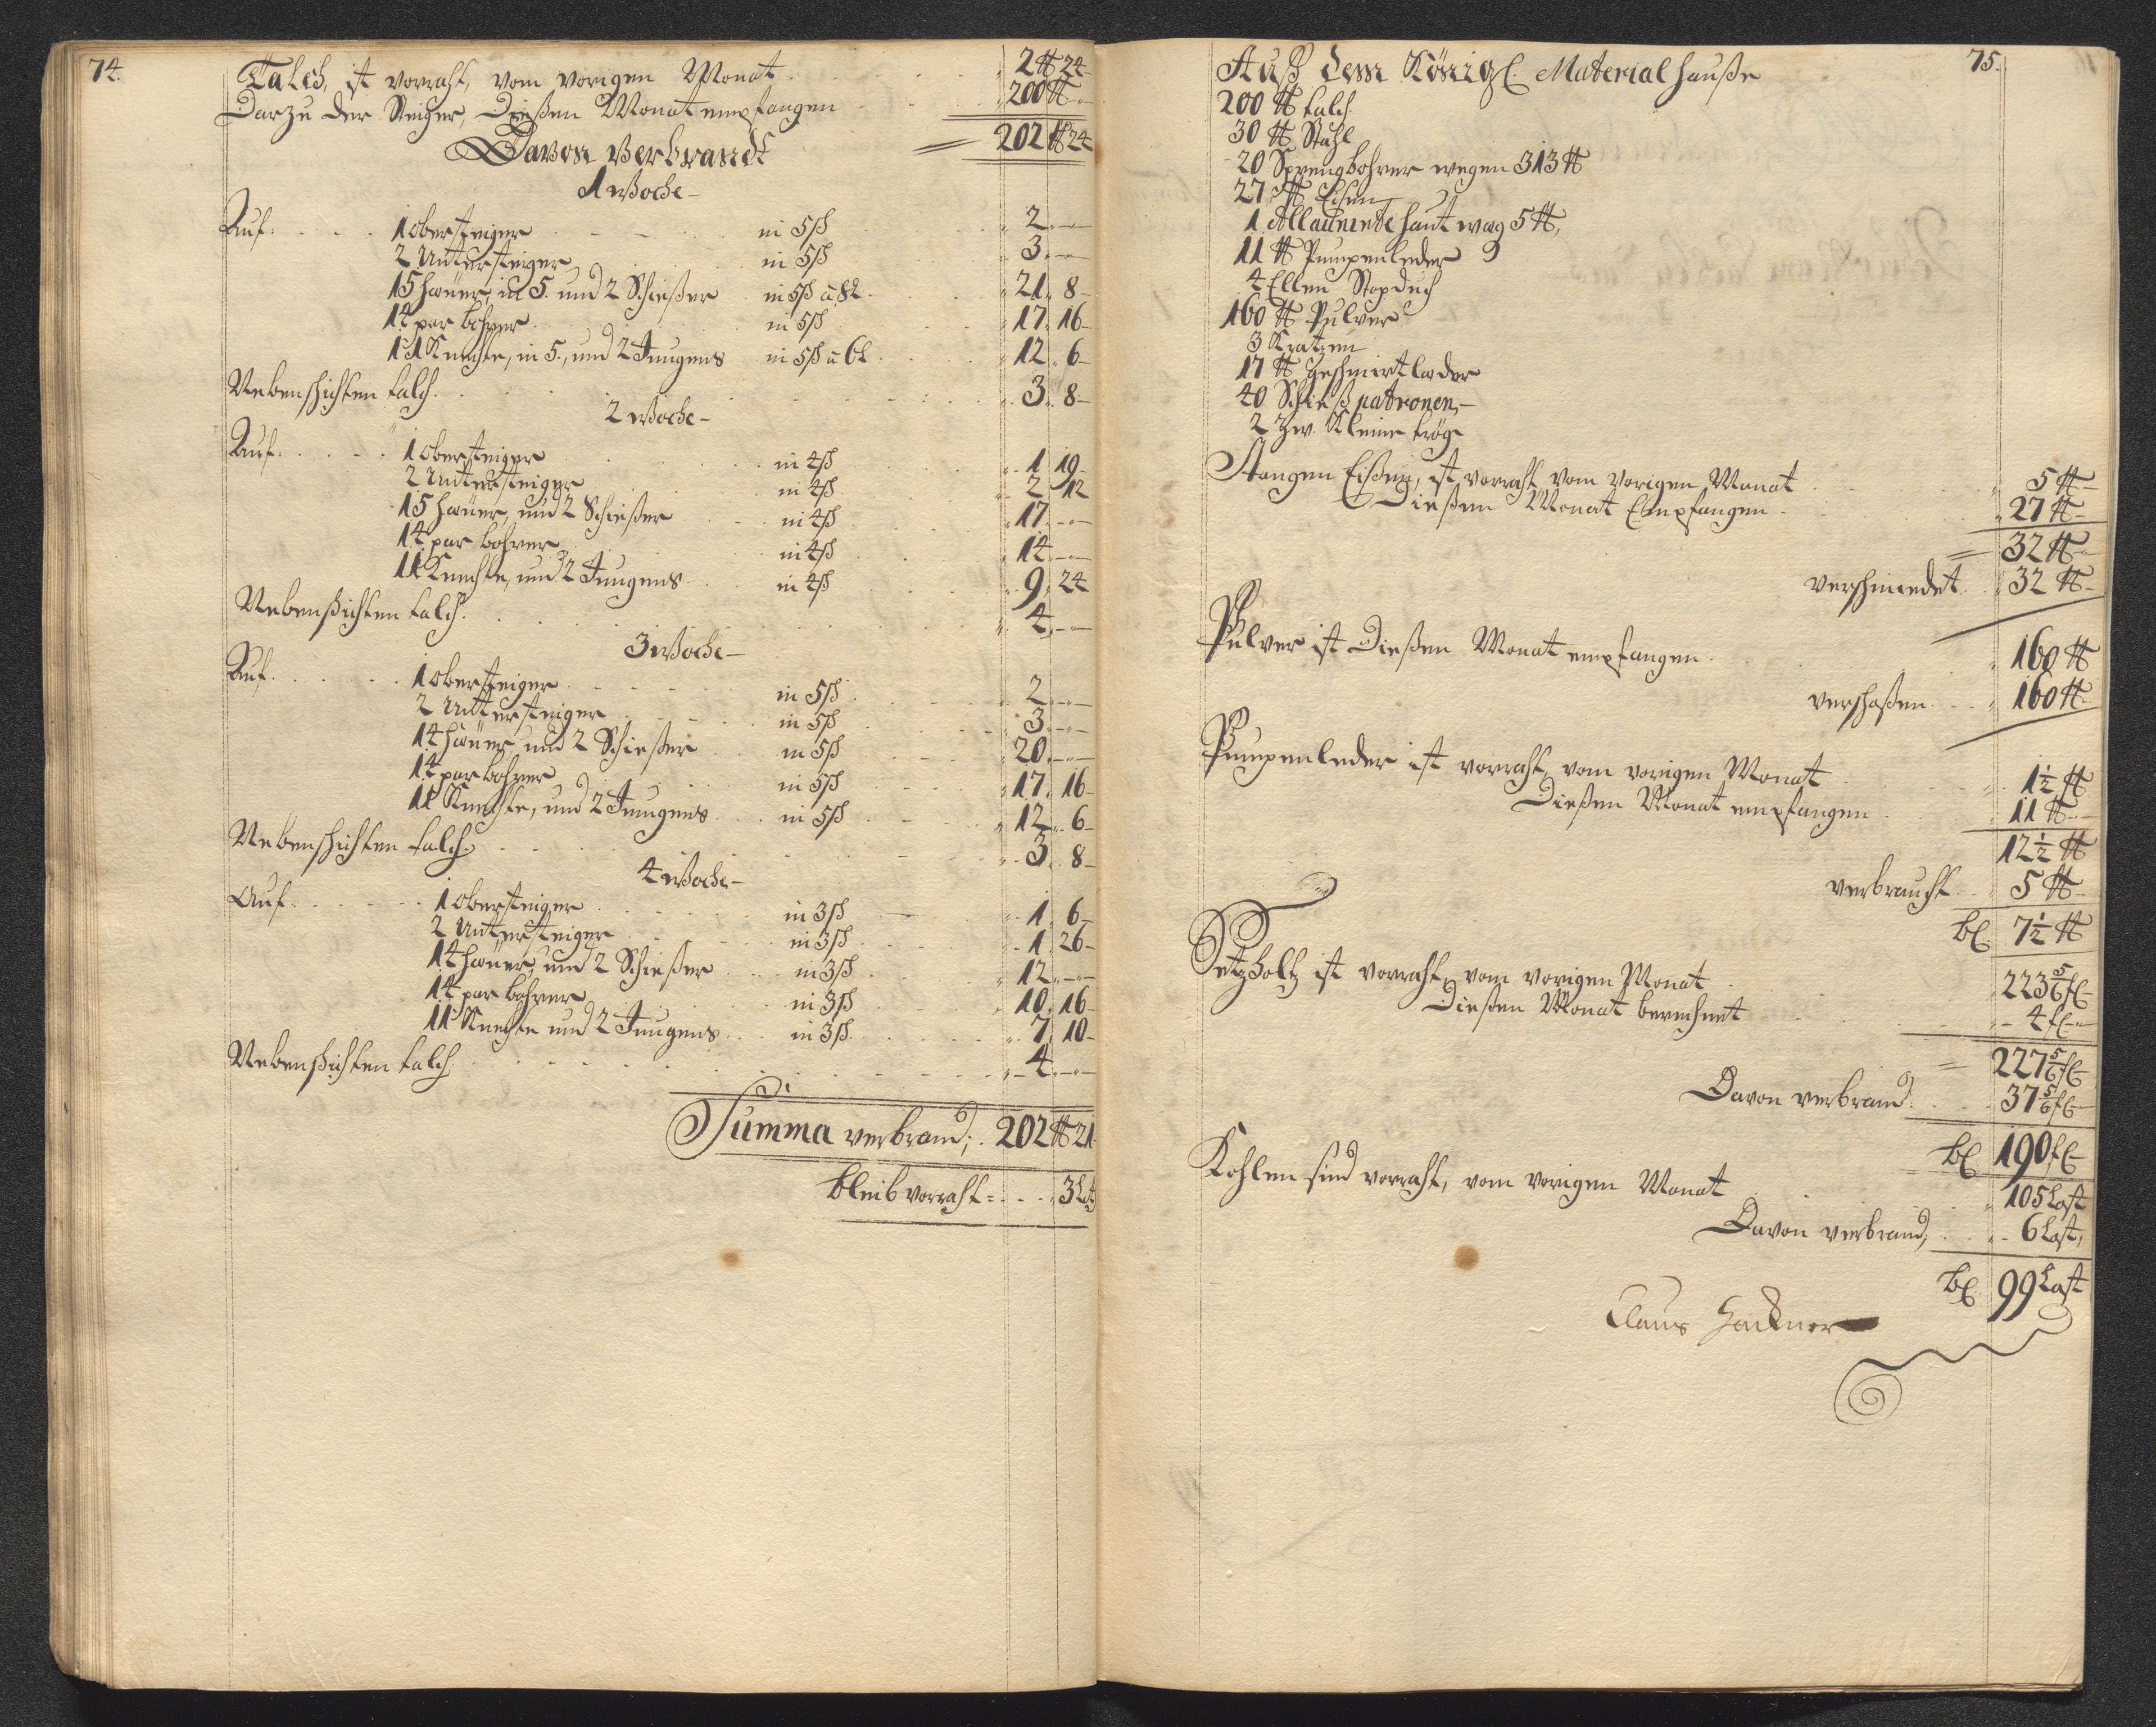 74.
Talch, ist vorraht, vom vorigen Monat . . . 2 ℔ 24
Darzu der Steiger, Dießen Monat empfangen . . . 200 ℔
= 202 ℔ 24
Davon Verbrandt
1 Woche
Auf. . . . 1 obersteiger . . . in 5ß . . . 2. —
2 Untersteiger . . . in 5ß . . . 3. —
15 häuer, in 5. und 2 Schießer . in 5ß à 8l. . . 21. 8
14 par bohrer . . . in 5ß . . . 17. 16
11 Knechte, in 5., und 2 Jungens in 5ß à 6l . . . 12. 6
Nebenschichten talch. . . . 3. 8
2 Woche
Auf. . . . 1 obersteiger . . . in 4ß . . . 1. 19
2 Untersteiger . . . in 4ß . . . 2. 12
15 häuer, und 2 Schießer . . . in 4ß . . . 17. —
14 par bohrer . . . in 4ß . . . 14. —
11 Knechte, und 2 Jungens . . . in 4ß . . . 9. 24
Nebenschichten talch. . . . 4. —
3 Woche
Auf. . . . 1 obersteiger . . . in 5ß . . . 2. —
2 Untersteiger . . . in 5ß . . . 3. —
14 häuer, und 2 Schießer . . . in 5ß . . . 20. —
14 par bohrer . . . in 5ß . . . 17. 16
11 Knechte, und 2 Jungens . . . in 5ß . . . 12. 6
Nebenschichten talch. . . . 3. 8
4 Woche
Auf. . . . 1 obersteiger . . . in 3ß . . . 1. 6
2 Untersteiger . . . in 3ß . . . 1. 26
14 häuer, und 2 Schießer . . . in 3ß . . . 12. —
14 par bohrer . . . in 3ß . . . 10. 16
11 Knechte und 2 Jungens . . . in 3ß . . . 7. 10
Nebenschichten talch. . . . 4. —
Summa verbrand; . 202 ℔ 21
bleib vorraht = . . . 3 Lot
75.
Auß dem Königl. Materialhauße
200 ℔ talch
30 ℔ Stahl
20 Sprengbohrer wegen 313 ℔
27 ℔ Eisen
1 Allaunente haut wag 5 ℔,
11 ℔ Pumpenleder
4 Ellen Stopduch
160 ℔ Pulver
3 Kratzen
17 ℔ geschmirtleder
40 Schieß patronen,
2 Zw. Kleine trög
Stangen Eißen, ist vorraht vom vorigen Monat . . . 5 ℔
Dießen Monat Empfangen . . . 27 ℔
= 32 ℔
verschmiedet . . . 32 ℔
Pulver ist Dießen Monat empfangen . . . 160 ℔
verschoßen . . . 160 ℔
Pumpenleder ist vorraht, vom vorigen Monat . . . 1½ ℔
Dießen Monat empfangen . . . 11 ℔
12½ ℔
verbraucht . . . 5 ℔
bl 7½ ℔
Setzholtz ist vorraht, vom vorigen Monat . . . 223 5/6 fl
Dießen Monat berechnet . . . 4 fl
= 227 5/6 fl
Davon verbrand . . . 37 5/6 fl
bl 190 fl
Kohlen sind vorraht, vom vorigen Monat . . . 105 Last
Davon verbrand, . . . 6 Last,
bl. 99 Last
Claus